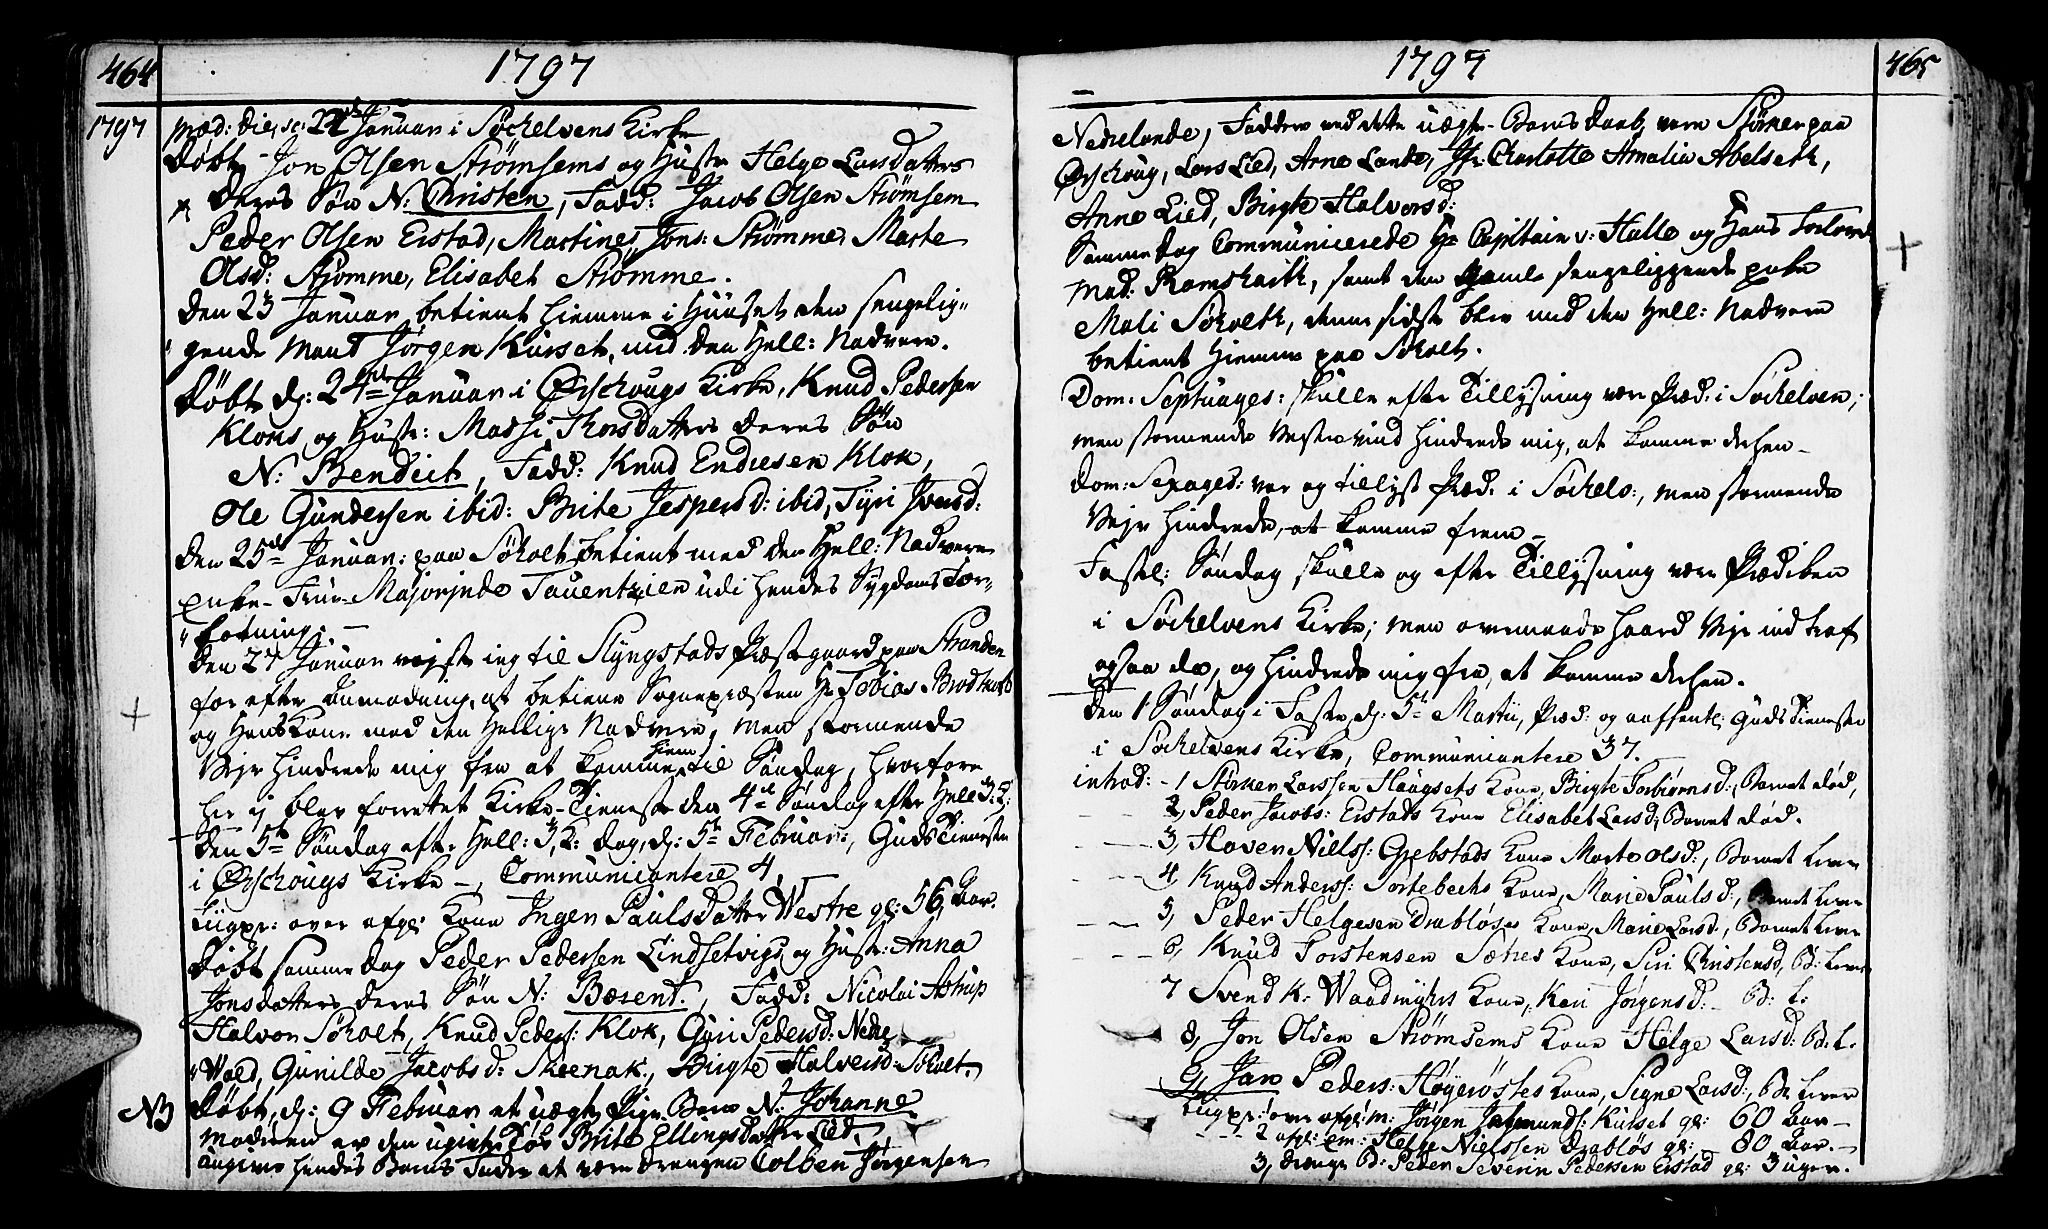 464
1797
1797
Præd: die, sc: 22de Januar i Söchelvens Kirke
Döbt Jon Olsen Strömsems og Hustr Helge Larsdatters
Deres Sön N: Christen, Fadd: Jacob Olsen Strömsem
Peder Olsen Erstad, Martine Jons: Strömme, Marte
Olsd: Strömme, Elisabet Strömme.
Den 23 Januar betient hiemme i Huuset den sengelig-
gende Mand Jörgen Kurset, med den Hell: Nadvere.
Döbt d: 24de Januar i Örschougs Kirke, Knud Pedersen
Kloks og Hustr: Massi Thorsdatters Deres Sön
N: Bendict, Fadd: Knud Endresen Klok,
Ole Gundersen ibid: Brite Jespersd: ibid, Tyri Iversd:
Den 25de Januar: paa Söholt betient med den Hell: Nadvere
syke Frue Majorinde Tauentzien udi hendes Sygdoms For-
fatning. —
Den 27 Januar rejste ieg til Slyngstads Præstegaard paa Stranden
for efter Anmodning, at betiene Sognepræsten Hr Tobias Brodtkorb
og Hans Kone med den Hellige Nadvere, men stormende
Vejr hindrede mig fra at komme hiem til Söndag, hvorfore
her ej blev forrettet Kirke-Tieneste den 4de Söndag efter Hell: 3: K:
Den 5te Söndag eft. Hell: 3, K: dag, d: 5te Februar:, GudsTieneste
i Örschougs Kirke —, Communicantere 4,
Liigpr: over afg: Kone Ingen Paulsdatter Westre gl: 56, Aar.
Döbt samme dag Peder Pedersen Lindsetvigs og Hustr: Anna
Jonsdatters deres Sön N: Bæsent., Fadd: Nicolai Astrup
Halvor Söholt, Knud Peders: Klok, Gyri Pedersd: Nedre
Wold, Gunilde Jacobsd: Skeenak, Birgte Halversd: Söholt.
NB Döbt, d: 9 Februar et uægte Pige Barn N: Johanne
Moderen er den ugivte Tös Brite Ellingsdatter Lied,
angivne hendes Barns Fader at være drengen Colben Jörgensen
1797
465
Nedrelande, Faddere ved dette uægte Barns daab, vare Störker paa
Örschoug, Lars Lied, Arne Lande, Jfr: Charlotte Amalia Abelseth,
Anne Lied, Birgte Halversd:
Samme dag Communicerede Hr Capitain v: Halle og Hans Forlovede
Mad: Ramshart, samt den gamle sengeliggende syke
Mali Söholt, denne sidste blev med den Hell: Nadvere
betient hiemme paa Söholt.
Dom: Septuages: skulle efter Tillysning være Præd: i Söchelven;
men stormende Vestenvind hindrede mig, at komme derhen —
Dom: Sexages: var og tillyst Præd: i Söchelv:, men stormende
Vejr hindrede, at komme frem —
Fastel: Söndag skulle og efter Tillysning være Prædiken
i Söchelvens Kirke; men overmaade haard Vejr indtraf
ogsaa da, og hindrede mig fra, at komme derhen.
Den 1 Söndag i Faste, d: 5te Martii, Præd: og aaffentl: GudsTieneste
i Söchelvens Kirke, Communicantere 37.
introd: - 1 Störker Larssen Haagsets Kone, Birgte Torbiörnsd:, Barnet död,
2, Peder Jacobs: Erstads Kone Elisabet Larsd:, Barnet död.
3, Haver Niels: Grebstads Kone Marte Olsd:, Barnet lever
4, Knud Anders: Tortebechs Kone, Marie Paulsd:, Barnet lever
5, Peder Helgesen Drablöses Kone, Marie Larsd:, Barnet lever
6, Knud Torstensen Sætres Kone, Siri Christensd, B: lever
7 Svend K: Waadmyhrs Kone, Kari Jörgensd: B: l:
8, Jon Olsen Strömsems Kone Helge Larsd: B: l.
9, Jan Peders: Höyeröstes Kone, Signe Larsd:, B: lever
Liigpr: 1 over afg: m: Jörgen Jetmunds: Kurset gl: 60 Aar —
2 afg: em: Helge Nielssen Drablös gl: 80 Aar. —
3, drenge B: Peder Severin Pedersen Erstad gl: 3 uger.